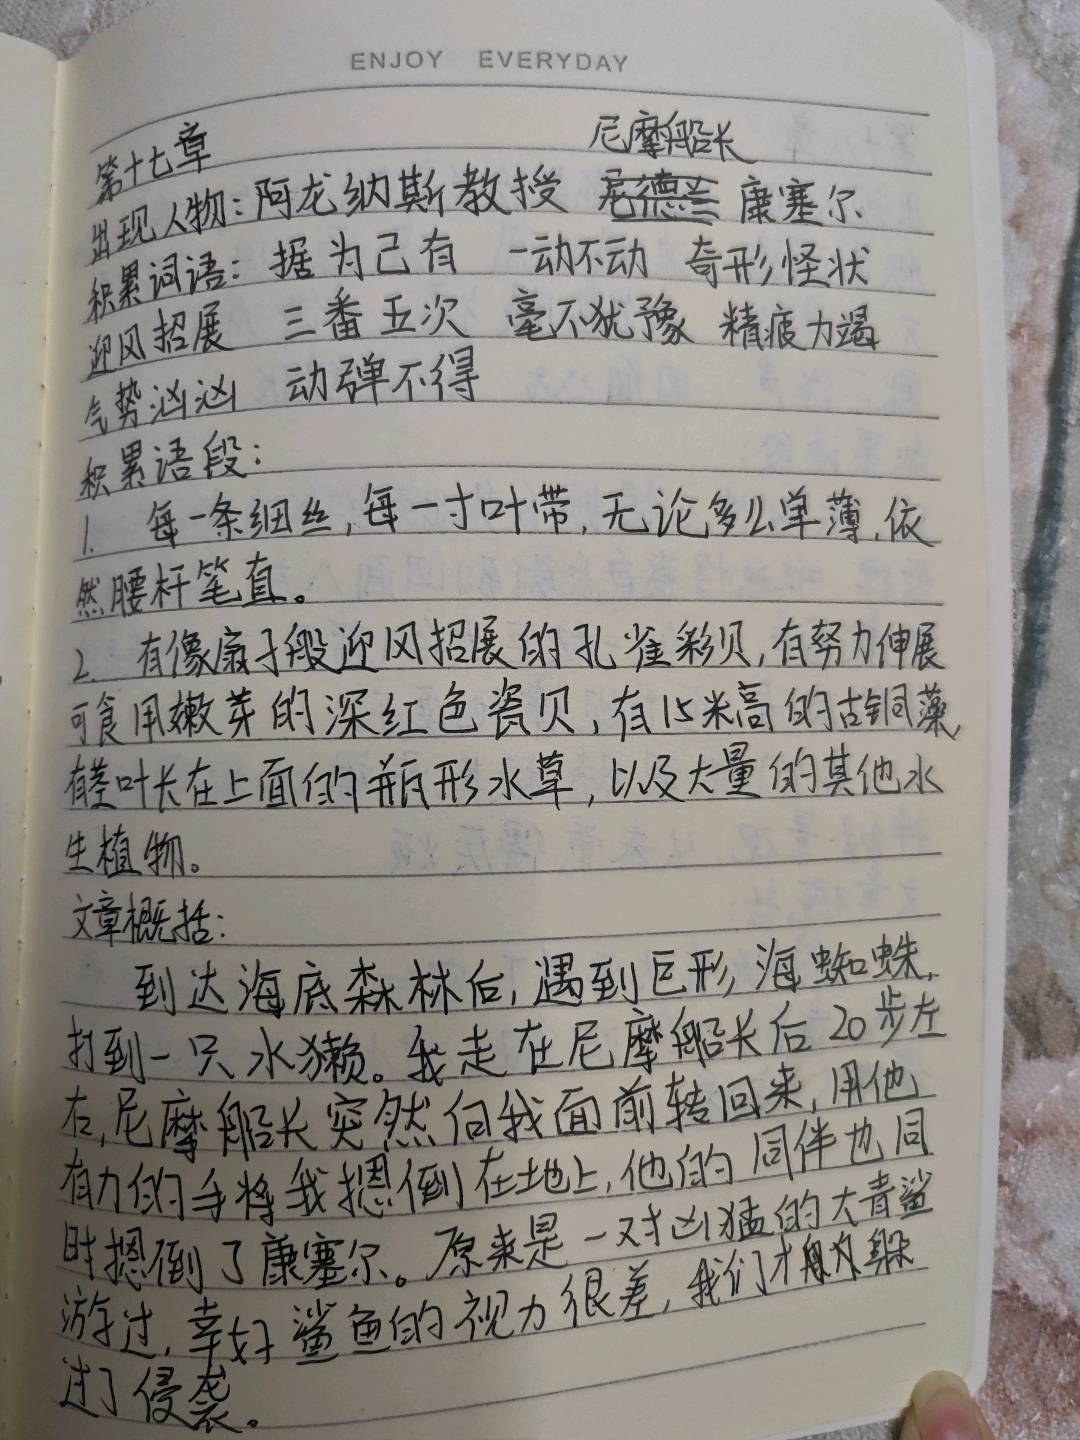 ENJOY EVERYDAY
第十七章 尼摩船长
出现人物：阿龙纳斯教授 尼德兰 康塞尔
积累词语：据为己有 一动不动 奇形怪状
迎风招展 三番五次 毫不犹豫 精疲力竭
气势汹汹 动弹不得
积累语段：
1. 每一条细丝，每一寸叶带，无论多么单薄，依
然腰杆笔直。
2. 有像扇子般迎风招展的孔雀彩贝，有努力伸展
可食用嫩芽的深红色瓷贝，有15米高的古铜藻，
有茎叶长在上面的瓶形水草，以及大量的其他水
生植物。
文章概括：
到达海底森林后，遇到巨形海蜘蛛，
打到一只水獭。我走在尼摩船长后20步左
右，尼摩船长突然向我面前转回来，用他
有力的手将我摁倒在地上，他的同伴也同
时摁倒了康塞尔。原来是一对凶猛的大青鲨
游过，幸好鲨鱼的视力很差，我们才躲
过了侵袭。